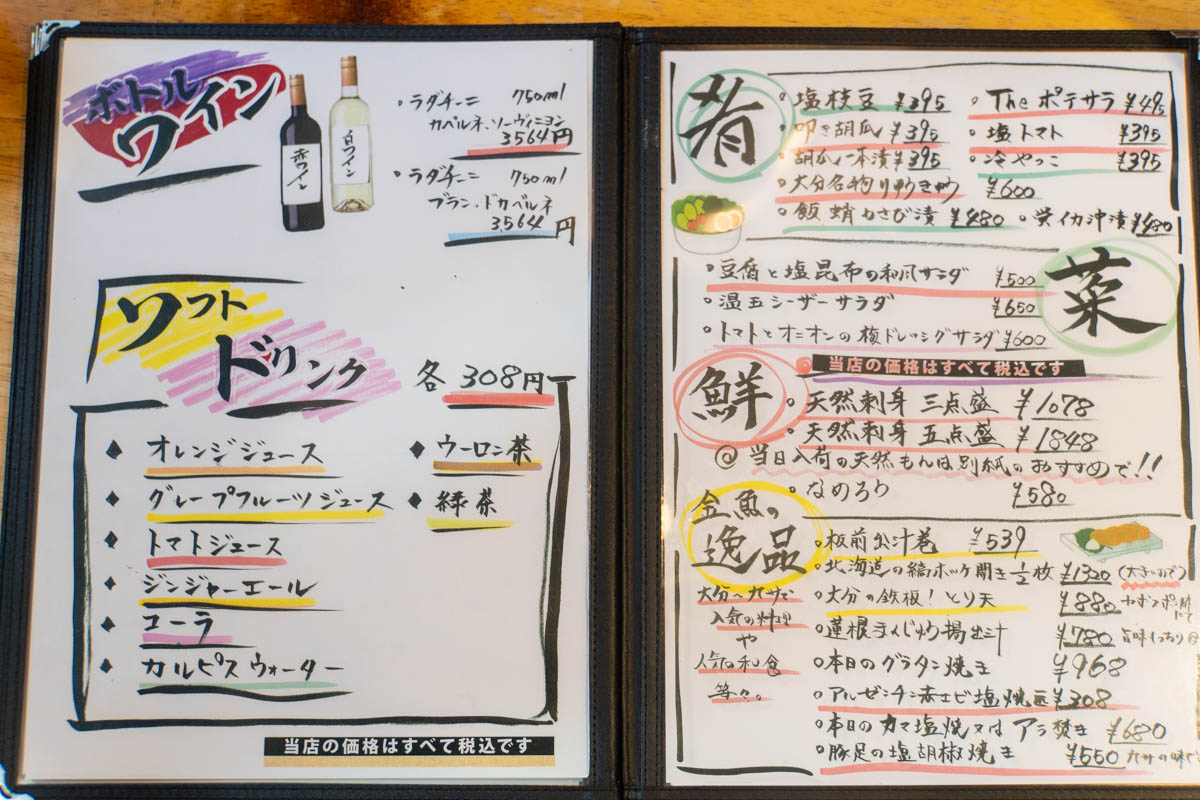 ボトル
ワイン
赤ワイン
白ワイン
・ラダチーニ 750ml
カベルネ、ソーヴィニヨン
3,564円
・ラダチーニ 750ml
ブラン、ドカベルネ
3,564円
ソフト
ドリンク
各 308円
オレンジジュース
グレープフルーツジュース
トマトジュース
ジンジャーエール
コーラ
カルピスウォーター
ウーロン茶
緑茶
当店の価格はすべて税込です
肴
・塩枝豆 ¥395
・The ポテサラ ¥495
・叩き胡瓜 ¥395
・塩トマト ¥395
・胡瓜一本漬 ¥395
・冷やっこ ¥395
・大分名物りゅうきゅう ¥600
・飯蛸わさび漬 ¥480
・蛍イカ沖漬 ¥480
菜
・豆腐と塩昆布の和風サラダ ¥500
・温玉シーザーサラダ ¥650
・トマトとオニオンの梅ドレッシングサラダ ¥600
当店の価格はすべて税込です
鮮
・天然刺身 三点盛 ¥1078
・天然刺身 五点盛 ¥1848
◎当日入荷の天然もんは別紙のおすすめで!!
・なめろう ¥580
金魚の
逸品
大分〜九州で
人気の料理
や
人気の和食
等々。
・板前出汁巻 ¥539
・北海道の縞ホッケ開き 1/2枚 ¥1320 (大きいので)
・大分の鉄板!とり天 ¥880 カボスポン酢にて
・蓮根まんじゅう揚出汁 ¥780 旨味もっちり
・本日のグラタン焼き ¥968
・アルゼンチン赤エビ塩焼 ¥308
・本日のカマ塩焼又は アラ焚き ¥680
・豚足の塩胡椒焼き ¥550 九州の味